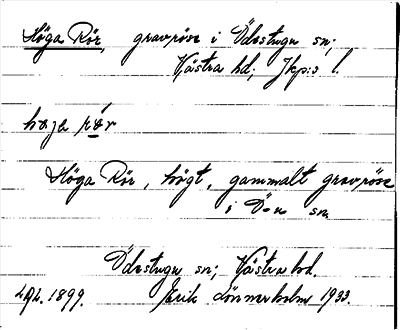 Höga Rör, gravröse i Ödestugu sn;
Västra hd; Jkp:s l.
haga rör
Höga Rör, högt, gammalt gravröse
i Ö-u sn
Ödestugu sn; Västra hd.
1899. Erik Lönnerholm 1933.